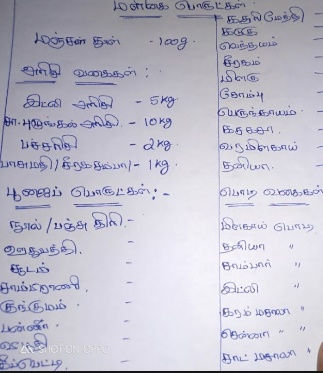 மளிகை பொருட்கள்
மஞ்சள் தூள் - 100g
அரிசி வகைகள் :
இட்லி அரிசி - 5kg
சா. புழுங்கல் அரிசி. - 10kg
பச்சரிசி - 2kg
பாசுமதி / சீரகசம்பா / - 1kg
பூஜைப் பொருட்கள் : -
நூல் / பஞ்சு திரி. -
ஊதுவத்தி. -
சூடம் -
சாம்பிராணி -
குங்குமம் -
பன்னீர் . -
தீப்பெட்டி. -
கடுகு -
வெந்தயம்
சீரகம்
மிளகு
சோம்பு
பெருங்காயம்
கசகசா.
வரமிளகாய்
தனியா.
பொடி வகைகள்
மிளகாய் பொடி
தனியா "
சாம்பார் "
இட்லி "
கரம் மசாலா "
சென்னா " "